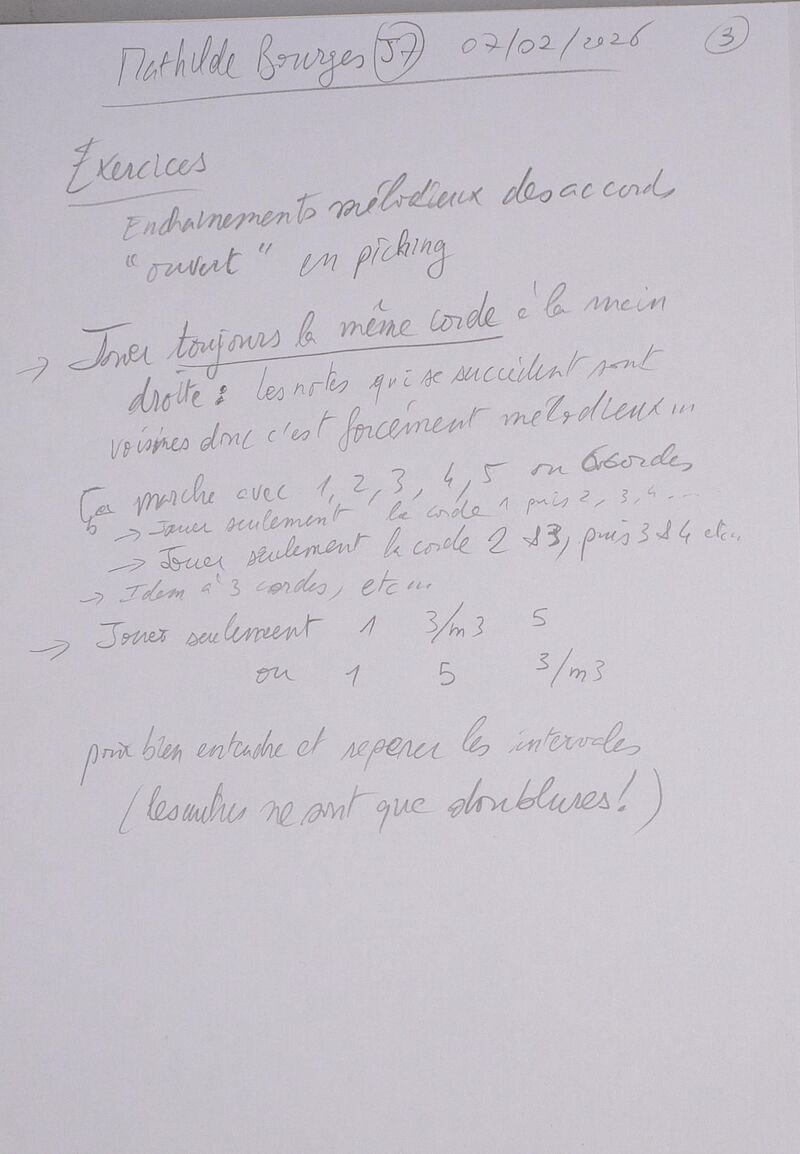 Mathilde Bourges (J7) 07/02/2026 (3)
Exercices
Enchainements mélodieux des accords
"ouvert" en picking
→ Jouer toujours la même corde à la main
droite : les notes qui se succèdent sont
voisines donc c'est forcément mélodieux ...
Ça marche avec 1, 2, 3, 4, 5 ou 6 cordes
→ Jouer seulement la corde 1 puis 2, 3, 4 ...
→ Jouer seulement la corde 2 & 3, puis 3 & 4 etc..
→ Idem à 3 cordes, etc...
→ Jouer seulement 1 3/m3 5
ou 1 5 3/m3
pour bien entendre et reperer les intervales
(les autres ne sont que doublures!)